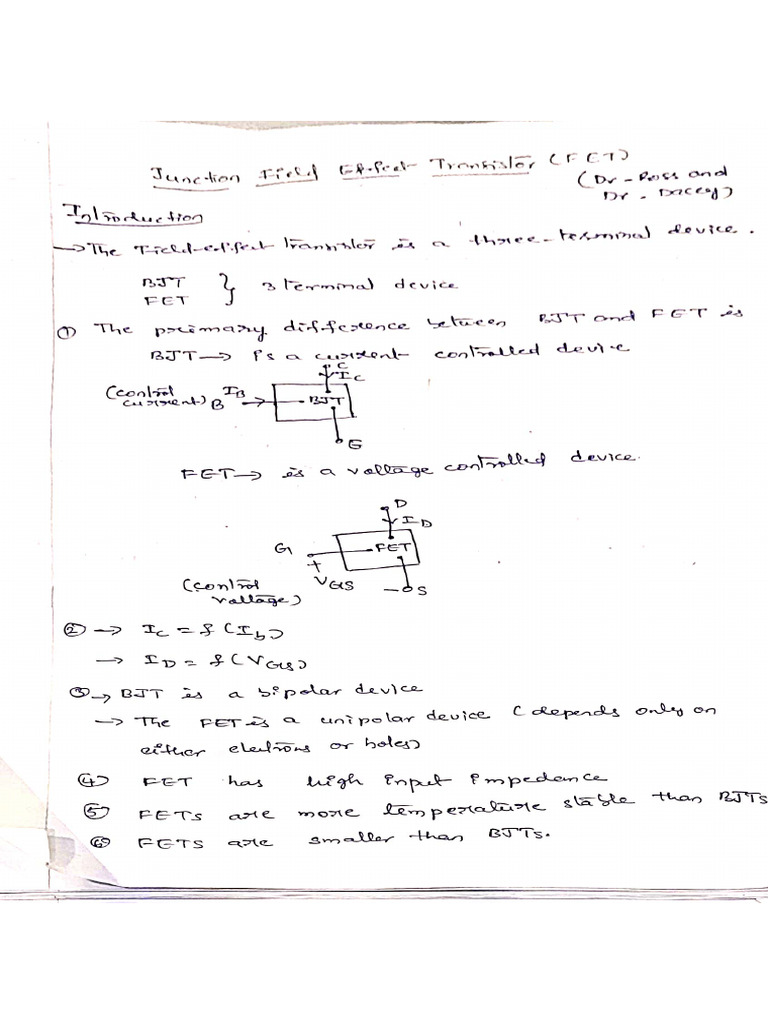 Junction Field Effect Transistor (FET)
(Dr-Ross and
Dr. Dacey)
Introduction
→ The Field-effect transistor is a three-terminal device.
BJT
FET } 3 terminal device
① The primary difference between BJT and FET is
BJT → is a current controlled device
C
I_C
(control
current) B I_B BJT
E
FET → is a voltage controlled device.
D
I_D
G FET
+
V_GS
(control
voltage)
- S
② → I_C = f(I_b)
→ I_D = f(V_GS)
③ → BJT is a bipolar device
→ The FET is a unipolar device (depends only on
either electrons or holes)
④ FET has high input impedance
⑤ FETs are more temperature stable than BJTs
⑥ FETs are smaller than BJTs.